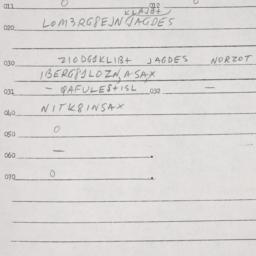 0 018 0
KLAJB+
020 LOM3RG8EJN JAGDES
030 210DG1KLIB+ JAGDES NORZOT
1BERG81LOZN,A,SAX
031 - QAFULES+ISL 032 -
040 NITK8INSAX
050 0
060 -
070 0